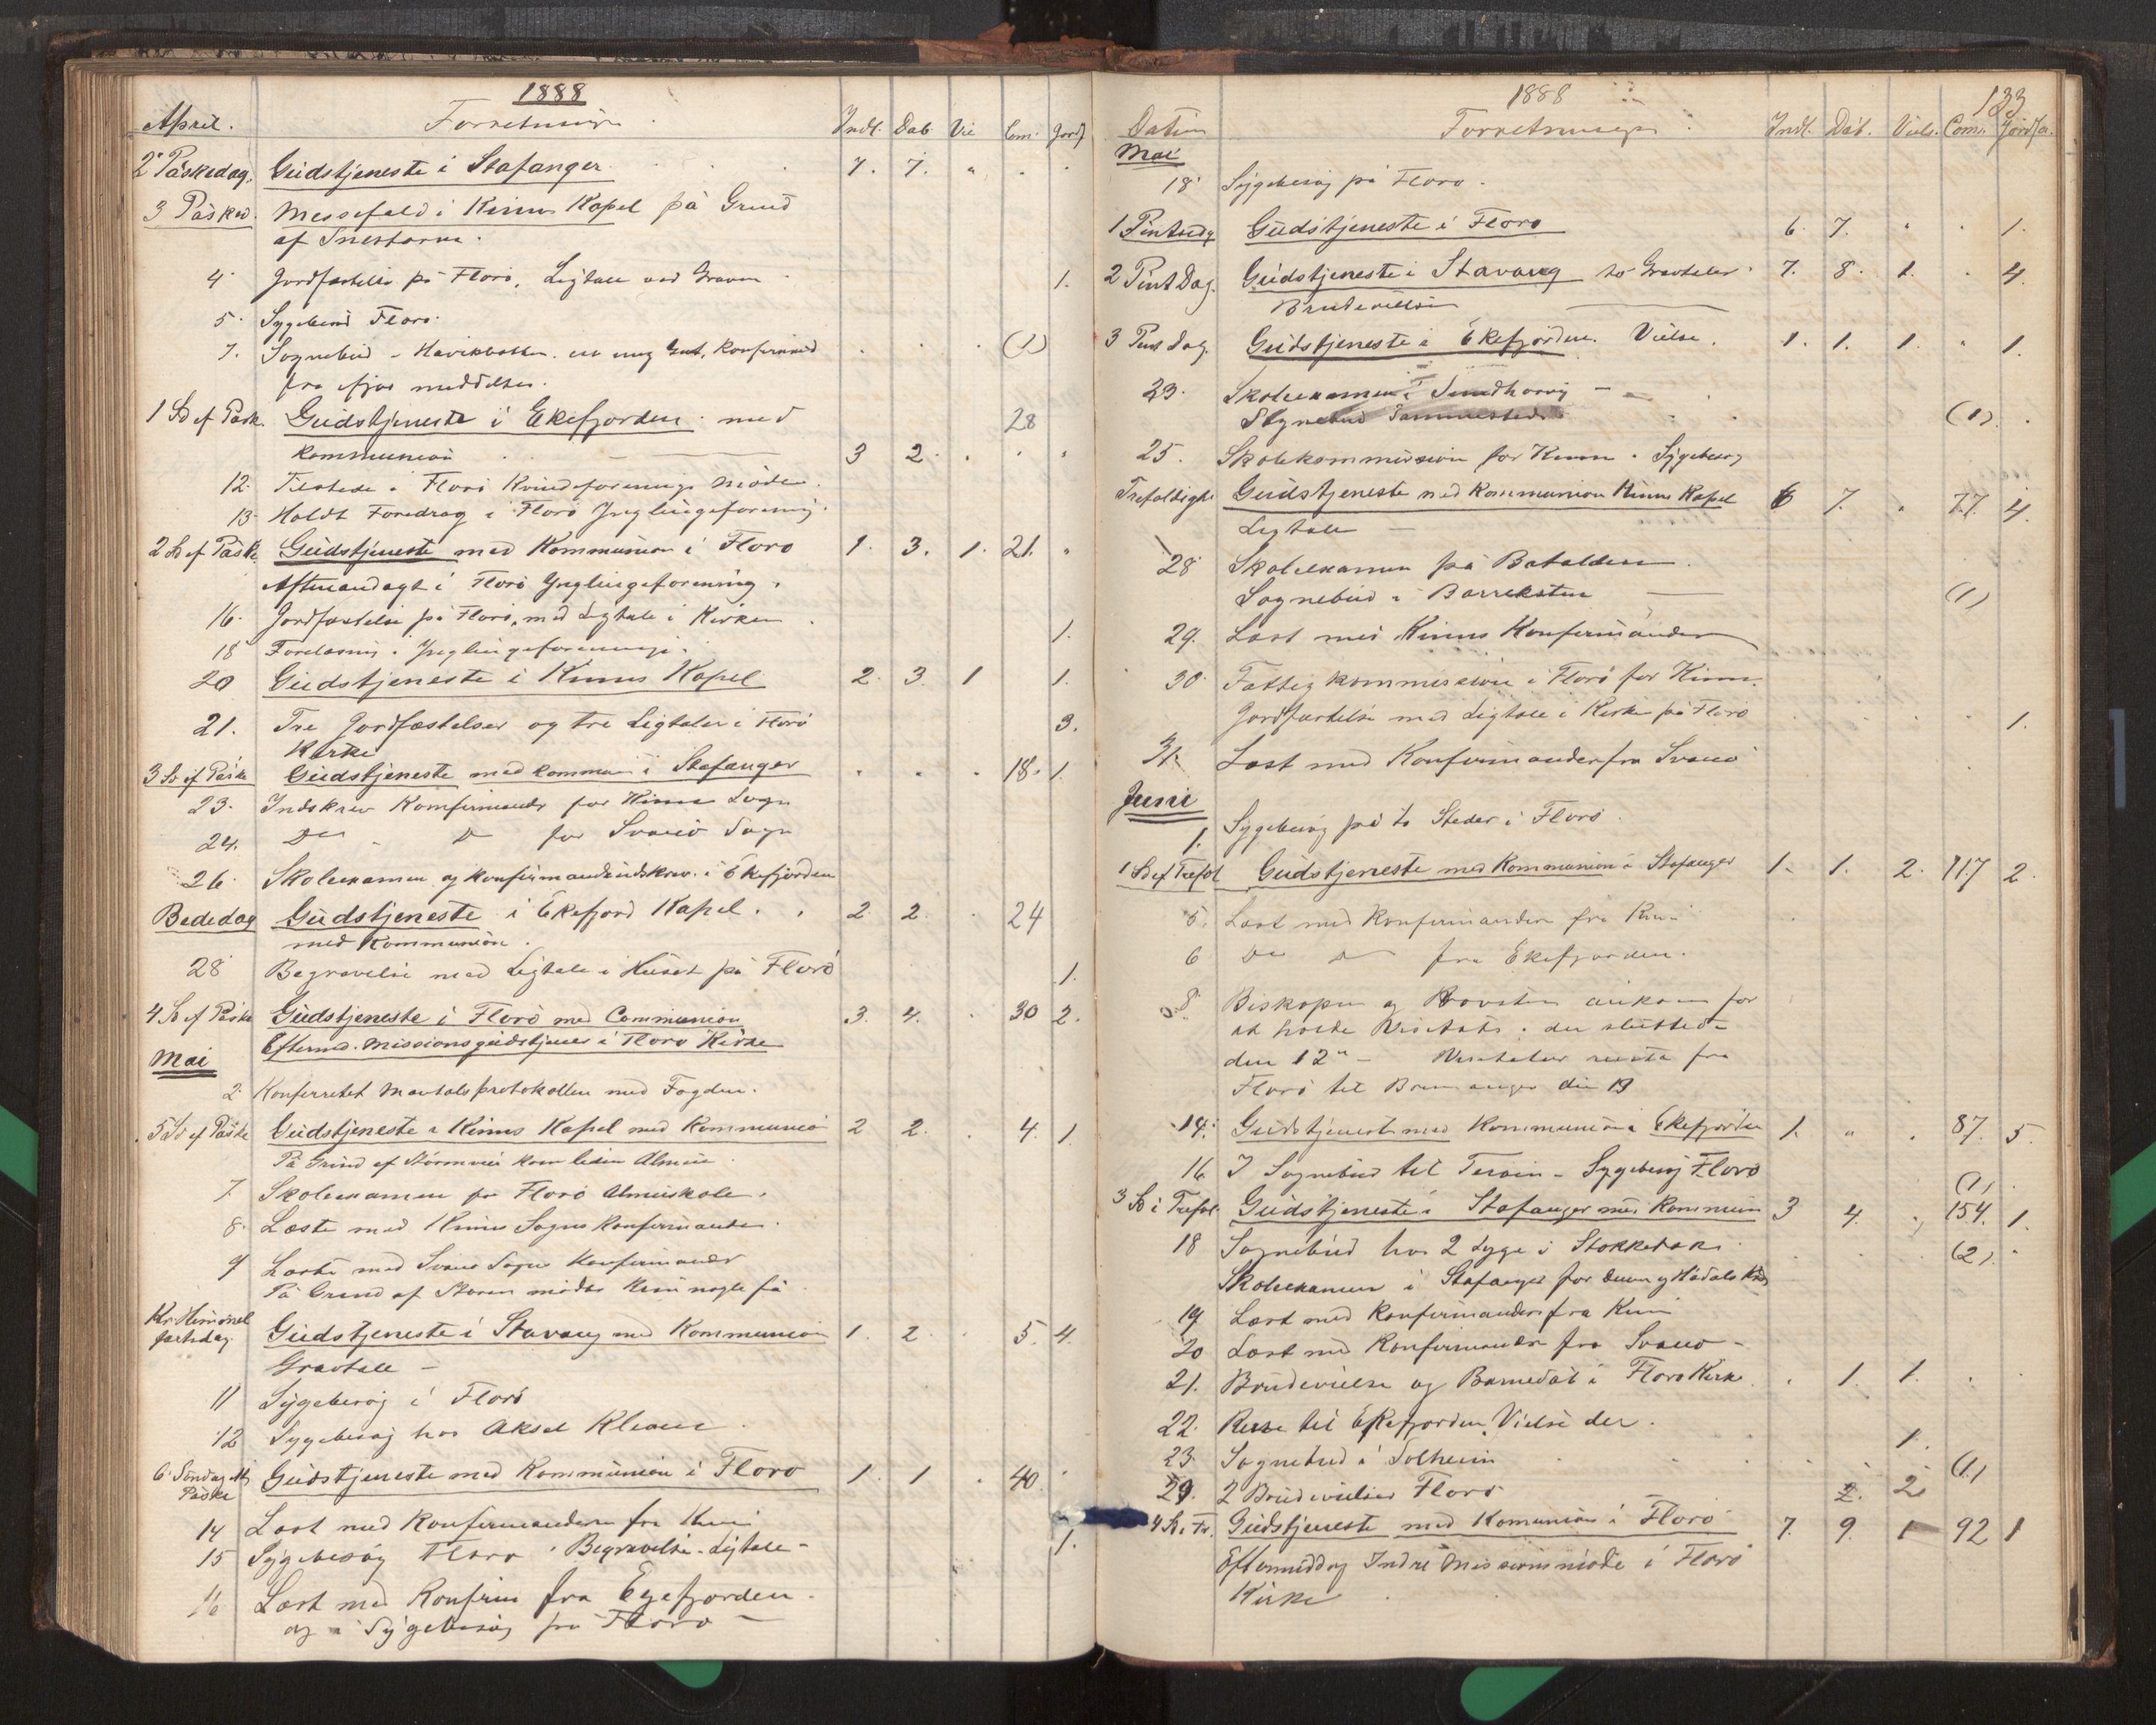 1888
April. Forretninger. Indl. Dab Vie Com. Jordf
2 Påskedag. Gudstjeneste i Stafanger 7. 7. " . .
3 Påsked. Messefald i Kinns Kapel på Grund
af Snestorm.
4 Jordfæstelse på Florø, Ligtale ved Graven 1.
5. Sygebesøg Florø.
7. Sognebud - en ung Gut, Konfirmand . . . (1)
fra ifjor meddeltes.
1 Sd ef Påsk. Gudstjeneste i Ekefjorden med 28
Kommunion 3 2 . . .
12. Tilstede i Florø Kvindeforenings Møde.
13. Holdt Foredrag i Florø Ynglingeforening.
2 Sd ef Påske Gudstjeneste med Kommunion i Florø 1. 3. 1. 21. "
Aftenandagt i Florø Ynglingeforening.
16. Jordfæstelse på Florø, med Ligtale i Kirken 1.
18 Forelæsning i Ynglingeforeningen.
20 Gudstjeneste i Kinns Kapel 2. 3. 1 1.
21. Tre Jordfæstelser og tre Ligtaler i Florø 3.
Kirke
3 Sd ef Påske Gudstjeneste med kommun i Stafanger . . . 18. 1.
23. Indskrev Konfirmander for Kinns Sogn
24. Do Do for Svanø Sogn
26. Skoleexamen og konfirmandindskrev. i Ekefjorden
Bededag Gudstjeneste i Ekefjord Kapel. 2 2. . 24
med Kommunion.
28 Begravelse med Ligtale i Huset på Florø 1.
4 Sd ef Påske Gudstjeneste i Florø med Communion 3. 4. . 30 2.
Efterm. Missionsgudstjenes i Florø Kirke
Mai
2. Konferretet Mantalsprotokollen med Fogden.
5 Sd ef Påske Gudstjeneste i Kinns Kapel med Kommunion 2 2. . 4. 1.
På Grund af Stormveir kom liden Almue
7. Skoleexamen for Florø Almueskole.
8. Læste med Kinns Sogns Konfirmander.
9 Læste med Svanø Sogns Konfirmander
På Grund af Storm mødte kun nogle få
Kr. Himmel
fartsdag. Gudstjeneste i Stavang med Kommunion 1. 2. . 5. 4.
Gravtale -
11 Sygebesøg i Florø
12 Sygebesøg hos Aksel
6. Søndag eft
Påske Gudstjeneste med Kommunion i Florø 1. 1 . 40.
14 Læst med Konfirmandern fra Kinn
15 Sygebesøg Florø. Begravelse. Ligtale - 1.
16 Læst med Konfirm fra Egefjorden.
og i Sygebesøg på Florø -
1888 133
Datum Forretninger Indl. Dåb. Viels. Com. Jordfæ.
Mai
18. Sygebesøg på Florø.
1 Pintsedg Gudstjeneste i Florø 6. 7. . . 1.
2 Pint Dag. Gudstjeneste i Stavang to Gravtaler 7. 8. 1. . 4.
Brudevielse
3 Pins dag. Gudstjeneste i Ekefjorden. Vielse. 1. 1. 1. . 1.
23. Skoleexamen i
Sognebud (1).
25. Skolekommission for Kinn. Sygebesøg
Trefoldigh. Gudstjeneste med Kommunion Kinns Kapel 6 7. . 77. 4.
Ligtale -
28 Skoleexamen på Batalden.
Sognebud i Barreksten (1)
29. Læst med Kinns Konfirmander
30. Fattigkommission i Florø for Kinn.
Jordfæstelse med Ligtale i Kirken på Florø 1.
31. Læst med Konfirmander fra Svanø
Juni
1. Sygebesøg på to Steder i Florø.
1 Sd ef Trefol Gudstjeneste med Kommunion i Stafanger 1. 1. 2. 117 2.
5. Læst med Konfirmander fra Kinn
6 Do Do fra Ekefjorden.
8. Biskopen og Provsten ankom for
at holde Visitats. der sluttede
den 12" - reiste fra
Florø til Bremanger den 13
14. Gudstjeneste med Kommunion i Ekefjorden 1. " . 87. 5.
16. I Sognebud til - Sygebesøg Florø (1).
3 Sd i Trefol. Gudstjeneste i Stafanger med Kommunion 3 4. . 154. 1.
18 Sognebud hos 2 Syge i (2).
Skoleexamen i Stafanger for
19. Læst med konfirmander fra Kinn
20 Læst med Konfirmander fra Svanø -
21. Brudevielse og Barnedåb i Florø Kirke . 1. 1. . .
22. Reise til Ekefjorden. Vielse der. 1.
23. Sognebud i Solheim (1.)
29. 2 Brudevielser Florø 2. 2.
4 Sd. i Tr. Gudstjeneste med Komunion i Florø 7. 9. 1 92 1
Eftermiddag Indre Missionsmøde i Florø
Kirke